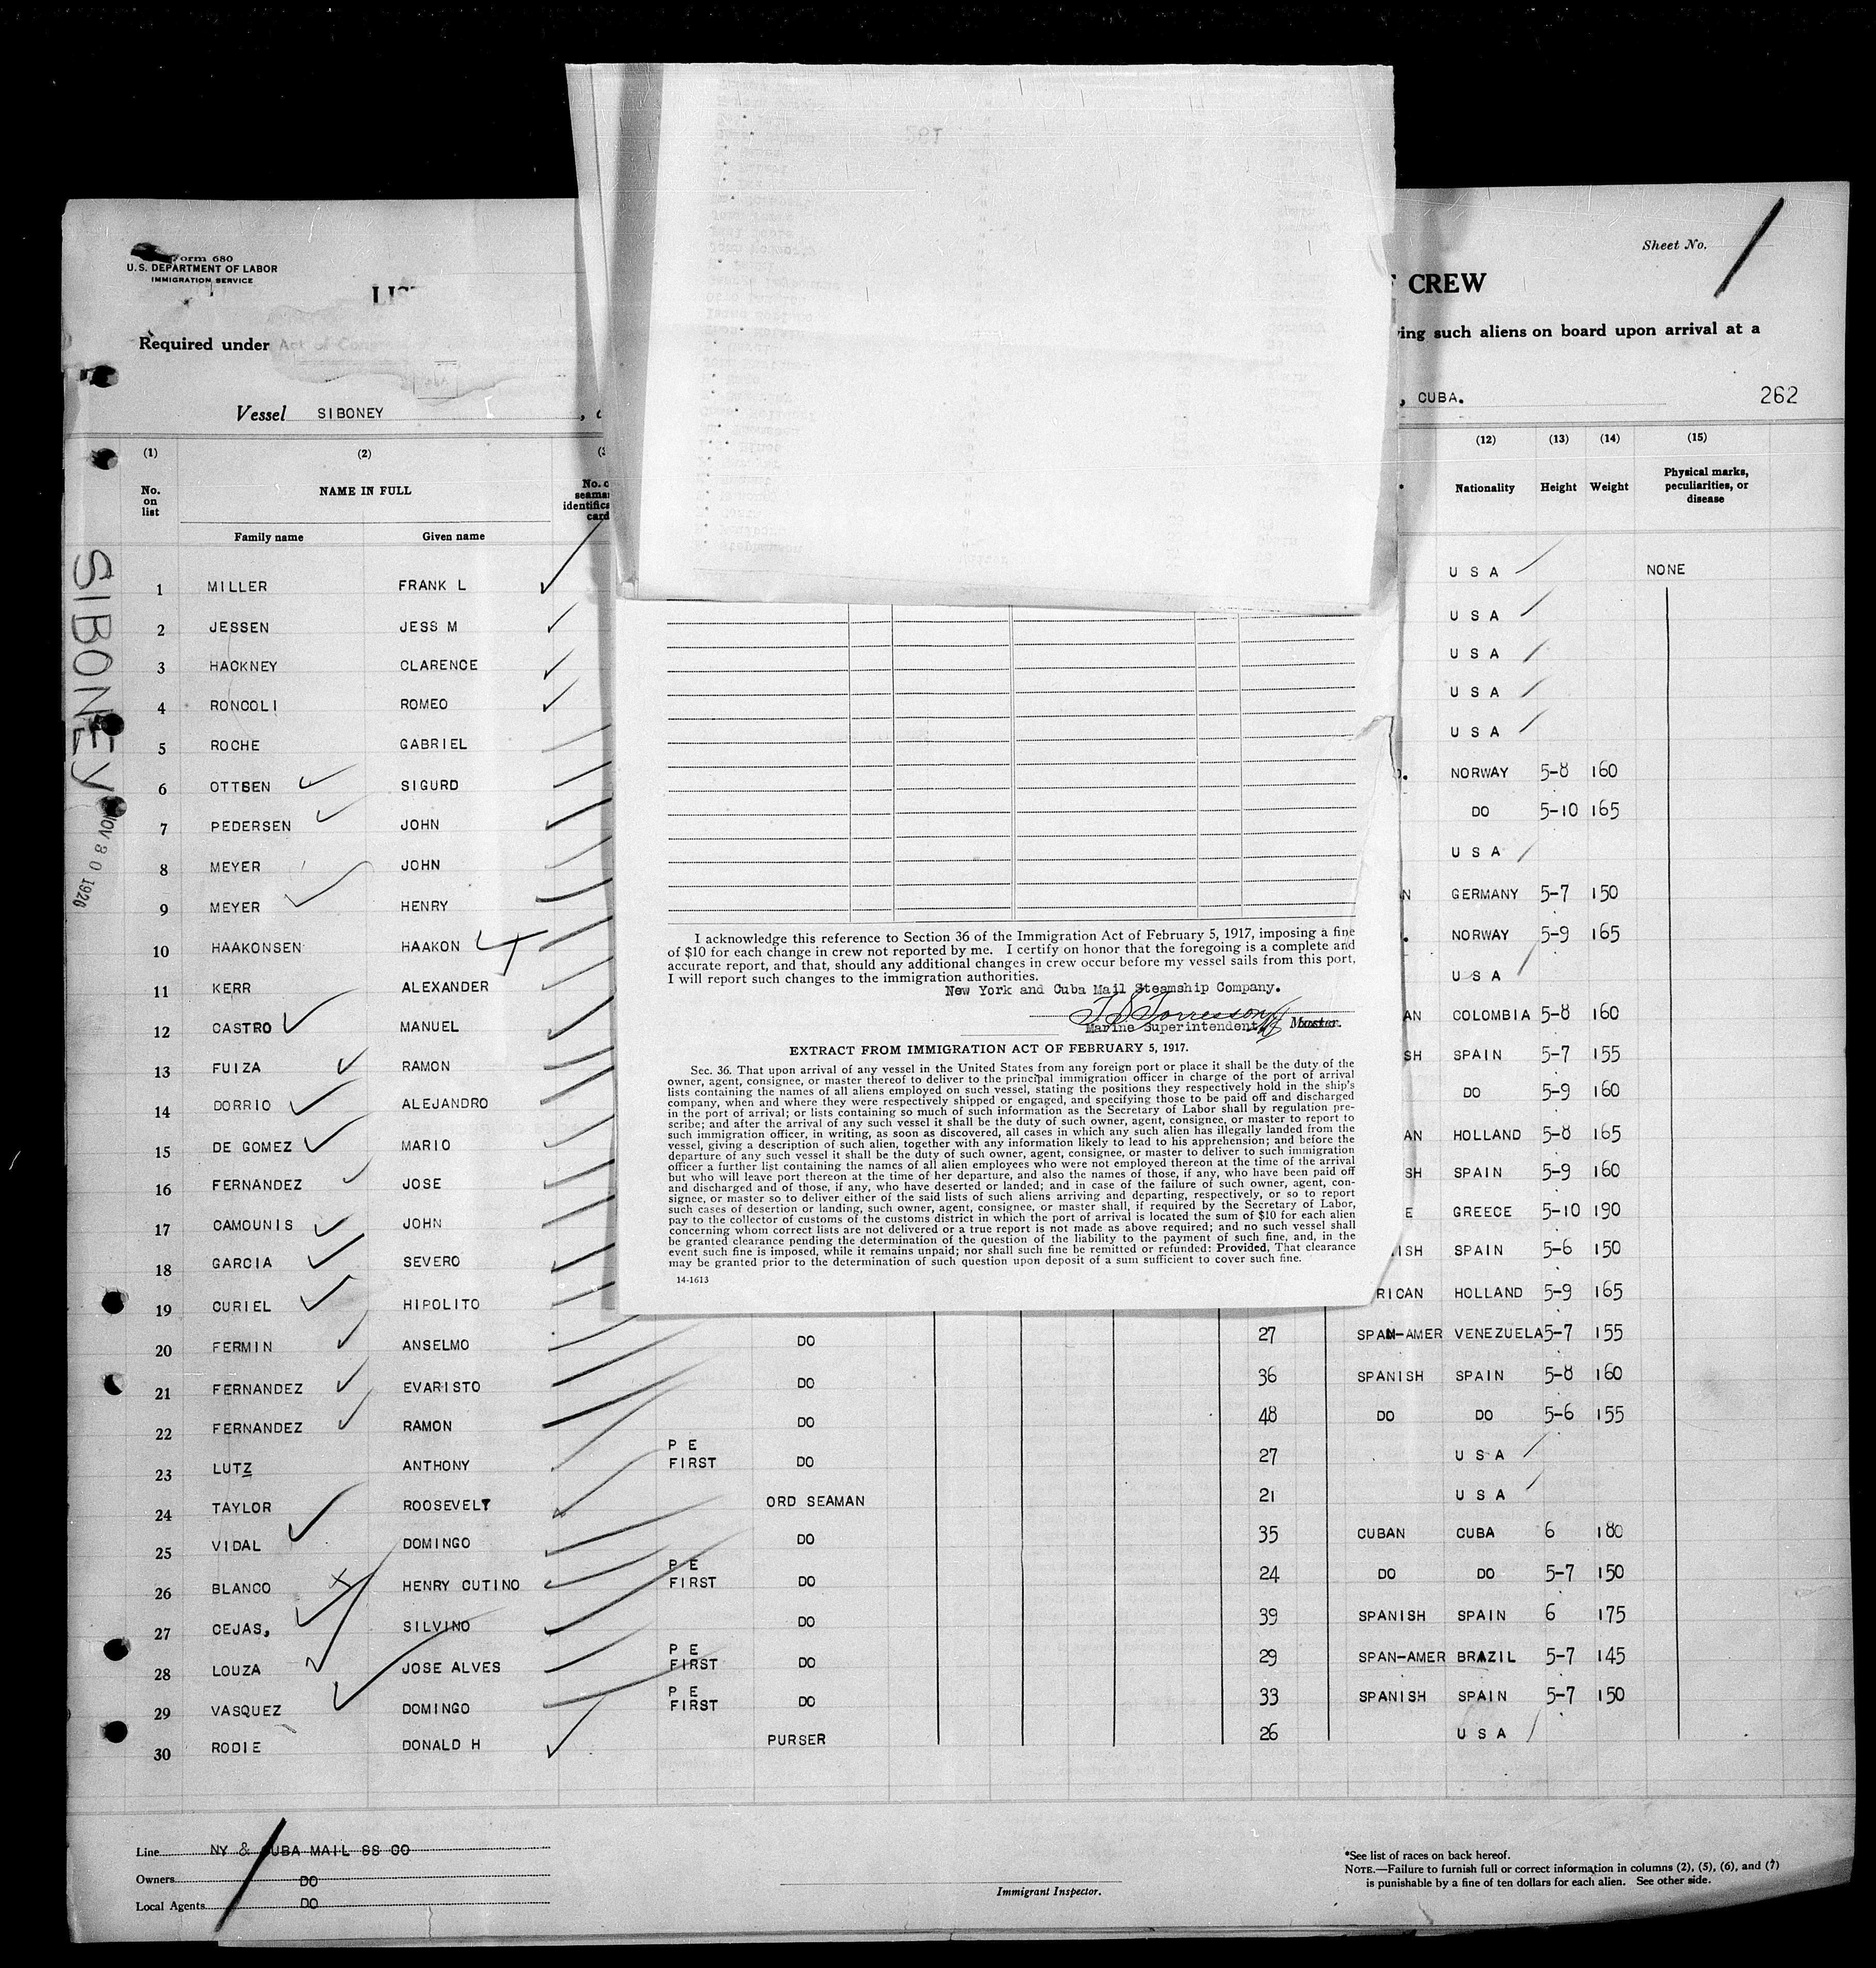 Form 680
U.S. DEPARTMENT OF LABOR
IMMIGRATION SERVICE
Sheet No. 1
CREW
Required under Act of
ing such aliens on board upon arrival at a
Vessel SIBONEY
, CUBA.
262
(1) (2) (12) (13) (14) (15)
No. on list
NAME IN FULL
Family name Given name
No. of
card
Nationality Height Weight
Physical marks, peculiarities, or disease
SIBONEY
1926
1 MILLER FRANK L U S A NONE
2 JESSEN JESS M U S A
3 HACKNEY CLARENCE U S A
4 RONCOLI ROMEO U S A
5 ROCHE GABRIEL U S A
6 OTTSEN SIGURD NORWAY 5-8 160
7 PEDERSEN JOHN DO 5-10 165
8 MEYER JOHN U S A
9 MEYER HENRY N GERMANY 5-7 150
10 HAAKONSEN HAAKON NORWAY 5-9 165
11 KERR ALEXANDER U S A
12 CASTRO MANUEL AN COLOMBIA 5-8 160
13 FUIZA RAMON SH SPAIN 5-7 155
14 DORRIO ALEJANDRO DO 5-9 160
15 DE GOMEZ MARIO AN HOLLAND 5-8 165
16 FERNANDEZ JOSE SH SPAIN 5-9 160
17 CAMOUNIS JOHN E GREECE 5-10 190
18 GARCIA SEVERO ISH SPAIN 5-6 150
19 CURIEL HIPOLITO RICAN HOLLAND 5-9 165
20 FERMIN ANSELMO DO 27 SPAN-AMER VENEZUELA 5-7 155
21 FERNANDEZ EVARISTO DO 36 SPANISH SPAIN 5-8 160
22 FERNANDEZ RAMON DO 48 DO DO 5-6 155
23 LUTZ ANTHONY P E FIRST DO 27 U S A
24 TAYLOR ROOSEVELT ORD SEAMAN 21 U S A
25 VIDAL DOMINGO DO 35 CUBAN CUBA 6 180
26 BLANCO HENRY CUTINO P E FIRST DO 24 DO DO 5-7 150
27 CEJAS, SILVINO DO 39 SPANISH SPAIN 6 175
28 LOUZA JOSE ALVES P E FIRST DO 29 SPAN-AMER BRAZIL 5-7 145
29 VASQUEZ DOMINGO P E FIRST DO 33 SPANISH SPAIN 5-7 150
30 RODIE DONALD H PURSER 26 U S A
I acknowledge this reference to Section 36 of the Immigration Act of February 5, 1917, imposing a fine
of $10 for each change in crew not reported by me. I certify on honor that the foregoing is a complete and
accurate report, and that, should any additional changes in crew occur before my vessel sails from this port,
I will report such changes to the immigration authorities.
New York and Cuba Mail Steamship Company.
Marine Superintendent Master.
EXTRACT FROM IMMIGRATION ACT OF FEBRUARY 5, 1917.
Sec. 36. That upon arrival of any vessel in the United States from any foreign port or place it shall be the duty of the
owner, agent, consignee, or master thereof to deliver to the principal immigration officer in charge of the port of arrival
lists containing the names of all aliens employed on such vessel, stating the positions they respectively hold in the ship's
company, when and where they were respectively shipped or engaged, and specifying those to be paid off and discharged
in the port of arrival; or lists containing so much of such information as the Secretary of Labor shall by regulation pre-
scribe; and after the arrival of any such vessel it shall be the duty of such owner, agent, consignee, or master to report to
such immigration officer, in writing, as soon as discovered, all cases in which any such alien has illegally landed from the
vessel, giving a description of such alien, together with any information likely to lead to his apprehension; and before the
departure of any such vessel it shall be the duty of such owner, agent, consignee, or master to deliver to such immigration
officer a further list containing the names of all alien employees who were not employed thereon at the time of the arrival
but who will leave port thereon at the time of her departure, and also the names of those, if any, who have been paid off
and discharged and of those, if any, who have deserted or landed; and in case of the failure of such owner, agent, con-
signee, or master so to deliver either of the said lists of such aliens arriving and departing, respectively, or so to report
such cases of desertion or landing, such owner, agent, consignee, or master shall, if required by the Secretary of Labor,
pay to the collector of customs of the customs district in which the port of arrival is located the sum of $10 for each alien
concerning whom correct lists are not delivered or a true report is not made as above required; and no such vessel shall
be granted clearance pending the determination of the question of the liability to the payment of such fine, and, in the
event such fine is imposed, while it remains unpaid; nor shall such fine be remitted or refunded: Provided, That clearance
may be granted prior to the determination of such question upon deposit of a sum sufficient to cover such fine.
14-1613
Line NY & CUBA MAIL SS CO
Owners DO
Local Agents DO
Immigrant Inspector.
*See list of races on back hereof.
NOTE.—Failure to furnish full or correct information in columns (2), (5), (6), and (7)
is punishable by a fine of ten dollars for each alien. See other side.